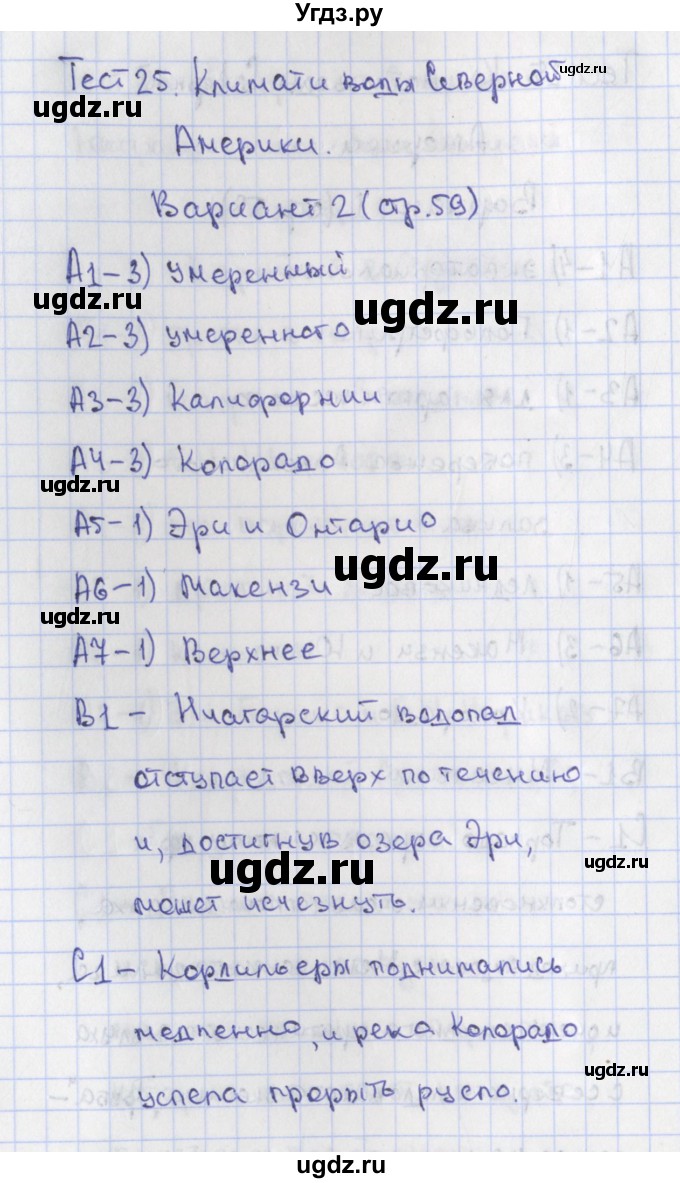 Угдз.ру
Тест 25. Климат и воды Северной
ugdz.ru
ugdz.ru
Америки.
Вариант 2 (стр.59)
А1-3) умеренный
ugdz.ru
ugdz.ru
А2-3) умеренного
А3-3) Калифорнии
А4-3) Колорадо
ugdz.ru
А5-1) Эри и Онтарио
ugdz.ru
А6-1) Макензи
ugdz.ru
А7-1) Верхнее
В1 - Ниагарский водопад
отступает вверх по течению
и, достигнув озера Эри,
ugdz.ru
может исчезнуть.
ugdz.ru
С1 - Кордильеры поднимались
медленно, и река Колорадо
ugdz.ru
успела прорыть русло.
ugdz.ru
ugdz.ru